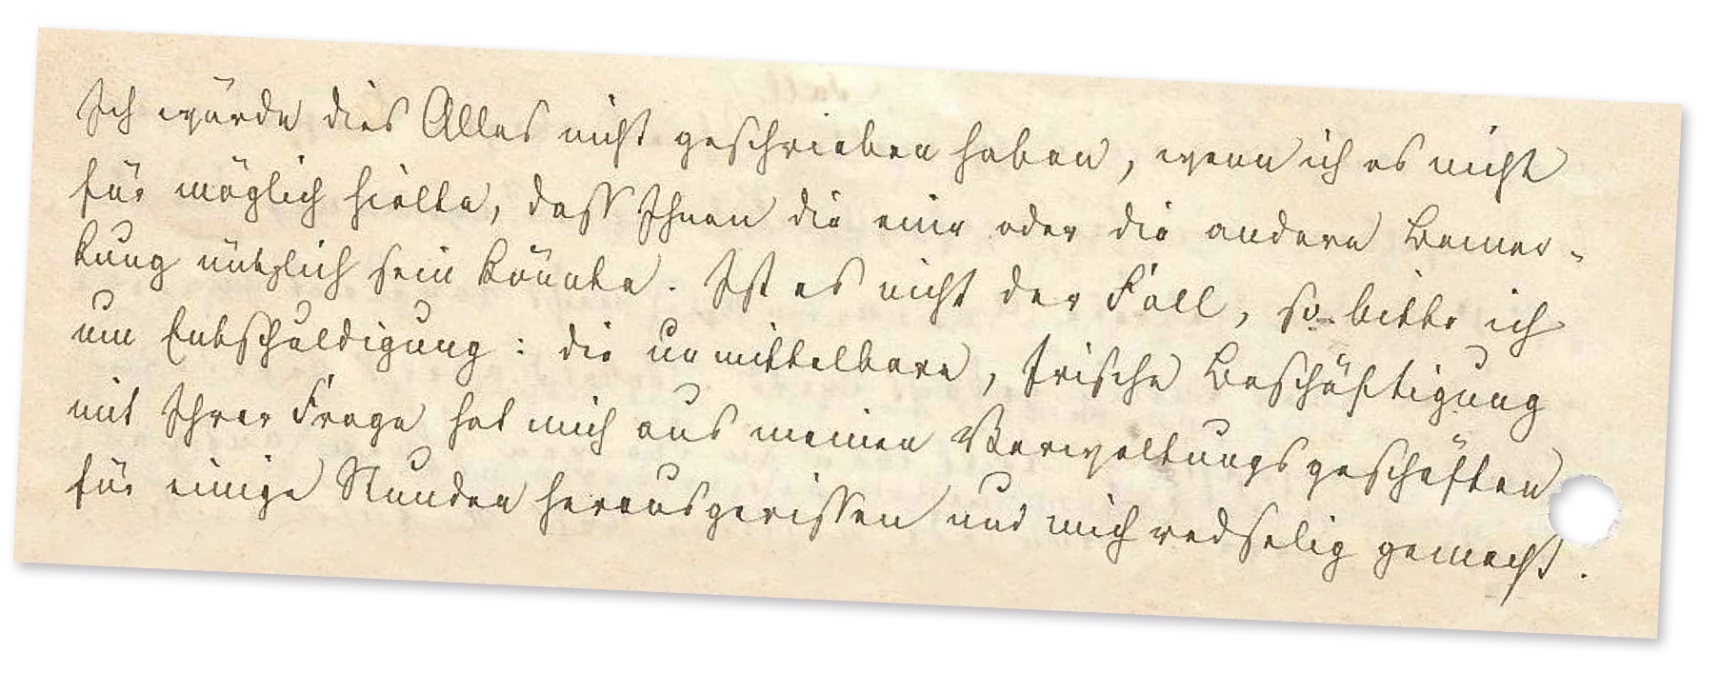 Ich würde dies Alles nicht geschrieben haben, wenn ich es nicht
für möglich hielte, dass Ihnen die eine oder die andere Bemer-
kung nützlich sein könnte. Ist es nicht der Fall, so bitte ich
um Entschuldigung: die unmittelbare, frische Beschäftigung
mit Ihrer Frage hat mich aus meinen Verwaltungsgeschäften
für einige Stunden herausgerissen und mich redselig gemacht.